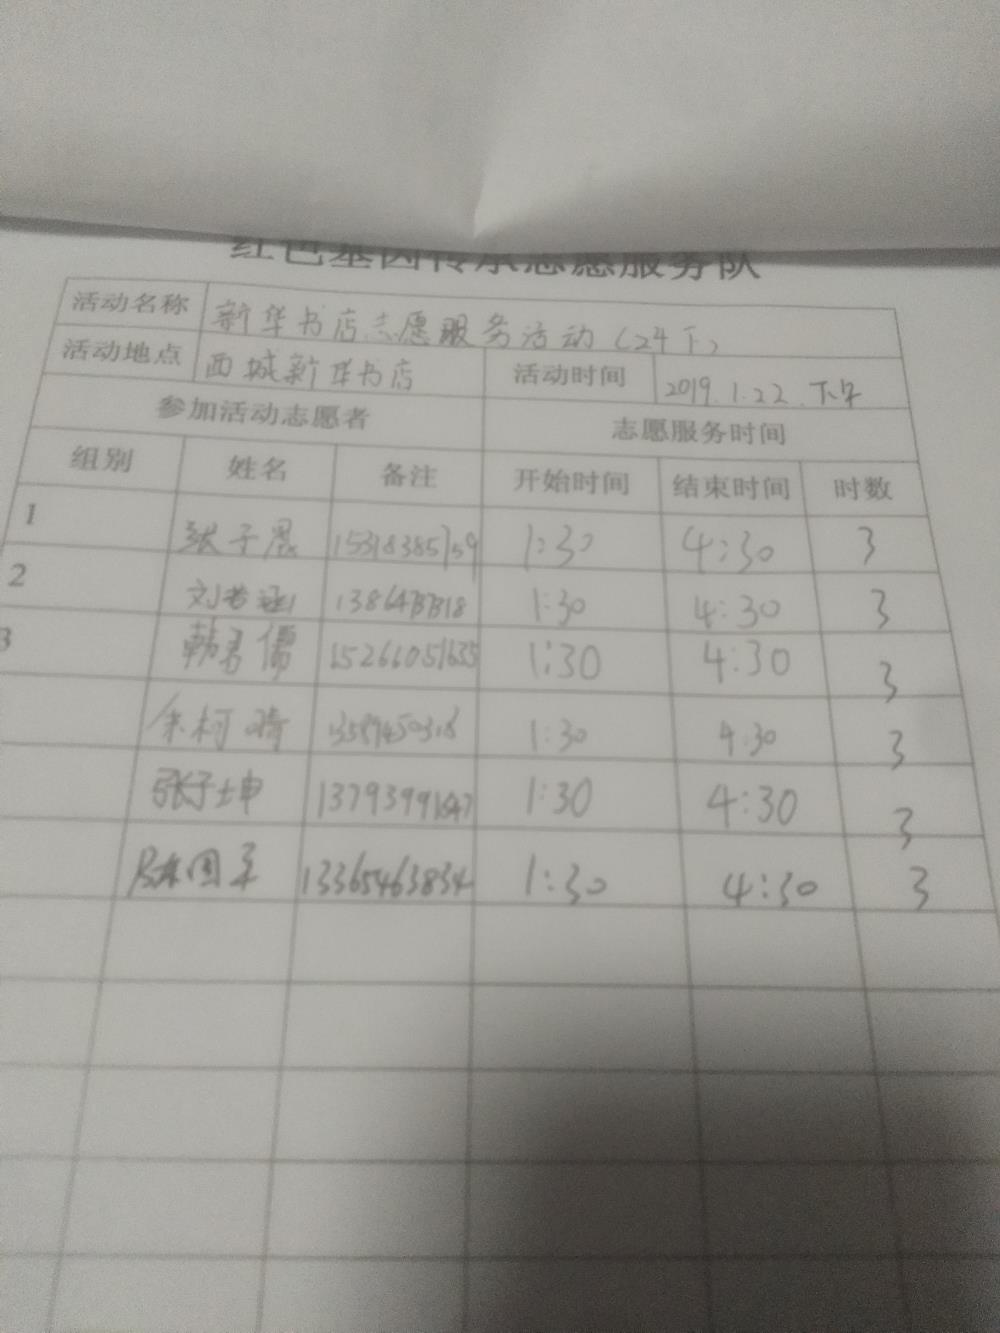 红色基因传承志愿服务队
活动名称 新华书店志愿服务活动(24下)
活动地点 西城新华书店 活动时间 2019.1.22.下午
参加活动志愿者 志愿服务时间
组别 姓名 备注 开始时间 结束时间 时数
1 张子恩 15318385759 1:30 4:30 3
2 刘若涵 1:30 4:30 3
3 韩君儒 15266051635 1:30 4:30 3
朱柯 1:30 4:30 3
张子坤 1:30 4:30 3
13365463834 1:30 4:30 3